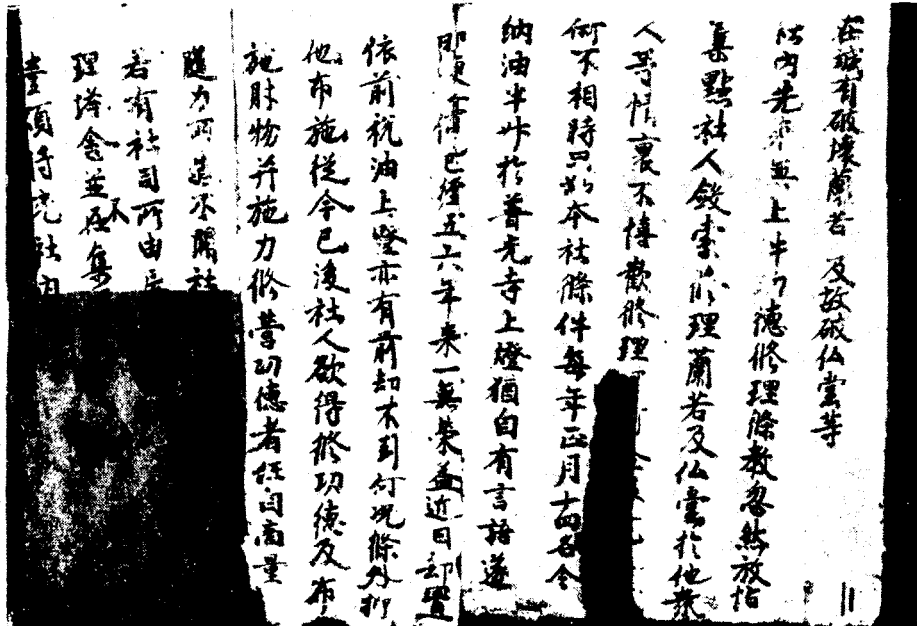 在城有破壞蘭若及故破仏堂等
社內先來無上件功德修理條教忽然放帖
集點社人斂索修理蘭若及仏堂於他衆
人等情裏不
何不相時只如本社條件每年正月十四日各令
納油半升於普光寺上燈猶自有言語遂
即便停已經五六年來一無榮益近日却置
依前稅油上燈亦有前却不到何況條外抑
他布施從今已後社人欲得修功德及布
施財物并施力修營功德者任自商量
隨力所造不關社
若有社司所由
理塔舍並不集
壹須寺